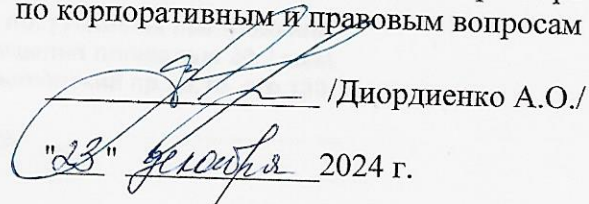 по корпоративным и правовым вопросам
/Диордиенко А.О./
"23" декабря 2024 г.